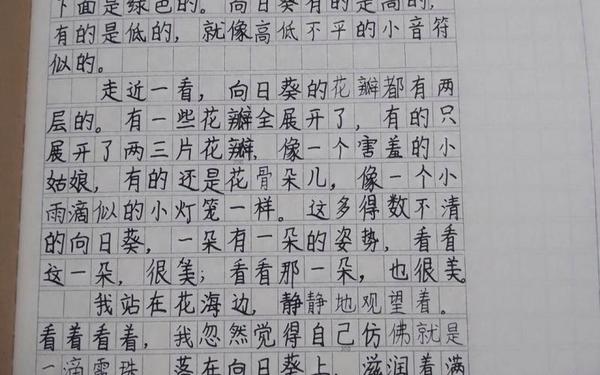 下面是绿色的。向日葵有的是高的，
有的是低的，就像高低不平的小音符
似的。
走近一看，向日葵的花瓣都有两
层的。有一些花瓣全展开了，有的只
展开了两三片花瓣，像一个害羞的小
姑娘，有的还是花骨朵儿，像一个小
雨滴似的小灯笼一样。这多得数不清
的向日葵，一朵有一朵的姿势，看看
这一朵，很美；看看那一朵，也很美。
我站在花海边，静静地观望着。
看着看着，我忽然觉得自己仿佛就是
一滴露珠，落在向日葵上，滋润着满